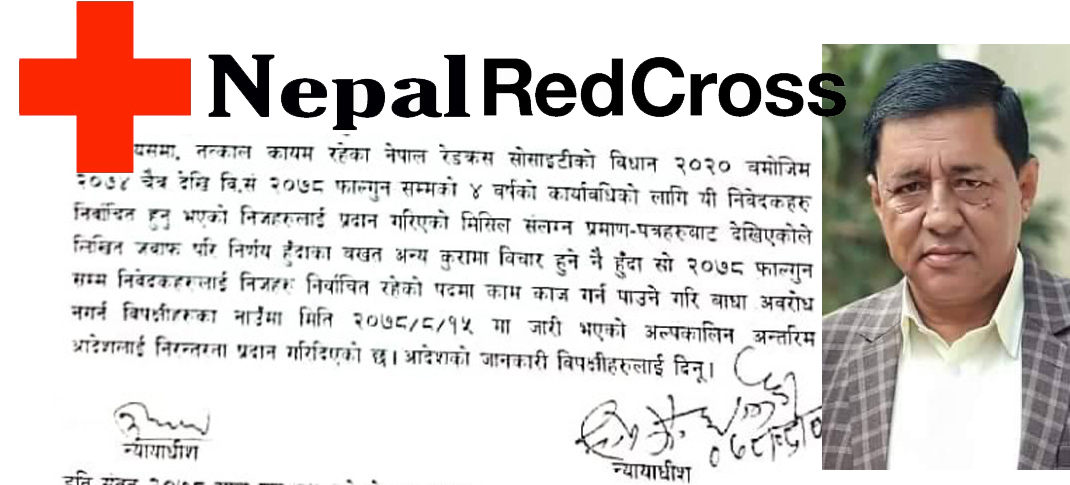 Nepal RedCross
यसमा, तत्काल कायम रहेका नेपाल रेडक्रस सोसाइटीको विधान २०२० बमोजिम
२०७४ चैत्र देखि वि.सं २०७८ फाल्गुन सम्मको ४ वर्षको कार्यावधिको लागि यी निवेदकहरु
निर्वाचित हुनु भएको निजहरुलाई प्रदान गरिएको मिसिल संलग्न प्रमाण-पत्रहरुबाट देखिएकोले
लिखित जवाफ परि निर्णय हुँदाका वखत अन्य कुरामा विचार हुने नै हुँदा सो २०७८ फाल्गुन
सम्म निवेदकहरुलाई निजहरु निर्वाचित रहेको पदमा काम काज गर्न पाउने गरि बाधा अवरोध
नगर्न विपक्षीहरुका नाउँमा मिति २०७८/८/१५ मा जारी भएको अल्पकालिन अन्तरिम
आदेशलाई निरन्तरता प्रदान गरिदिएको छ। आदेशको जानकारी विपक्षीहरुलाई दिनू।
न्यायाधीश
न्यायाधीश